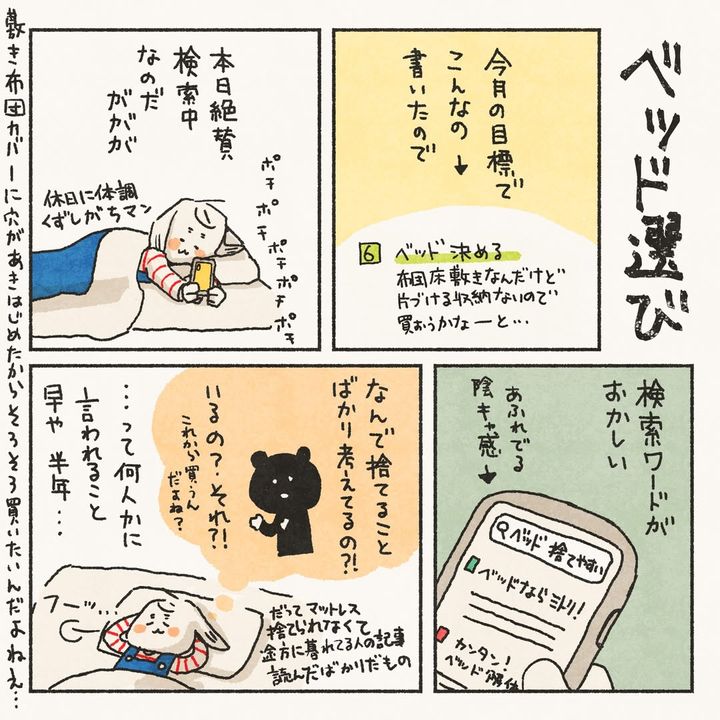 ベッド選び
今月の目標で
こんなの→
書いたので
6 ベッド 決める
布団床敷きなんだけど
片づける収納ないので
買おうかなーと…
本日絶賛
検索中
なのだ
ががが
休日に体調
くずしがちマン
ポチ
ポチ
ポチ
ポチ
ポチ
検索ワードが
おかしい
あふれでる
陰キャ感→
ベッド 捨てやすい
ベッドならミトリ!
カンタン!
ベッド解体
なんで捨てること
ばかり考えてるの?!
いるの?それ?!
これから買うん
だよね?
…って何人かに
言われること
早や 半年…
フーッ…
だってマットレス
捨てられなくて
途方に暮れてる人の記事
読んだばかりだもの
敷き布団カバーに穴があきはじめたからそろそろ買いたいんだよねぇ…